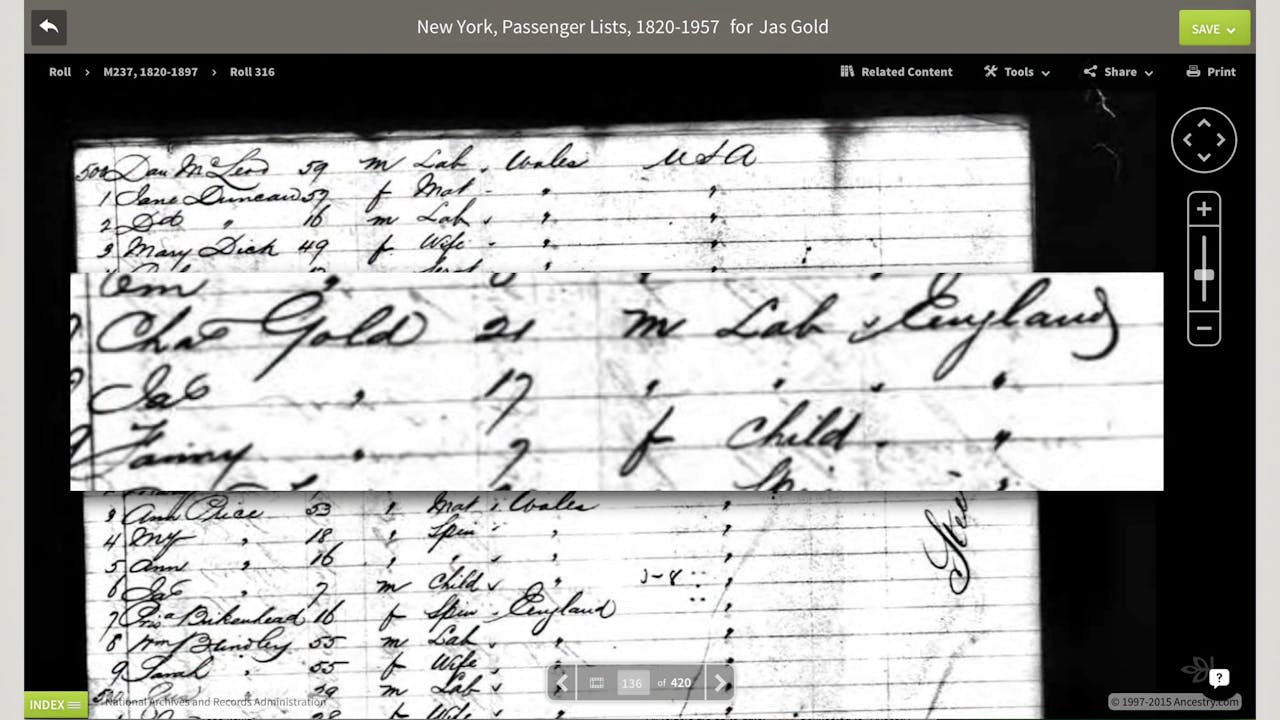 New York, Passenger Lists, 1820-1957 for Jas Gold
SAVE
Roll > M237, 1820-1897 > Roll 316
Related Content Tools Share Print
500 Dan McLeod 59 m Lab Wales USA
1 Jane Duncan 57 f Mat "
2 Do " 16 m Lab " "
3 Mary Dick 49 f Wife " "
Chas Gold 21 m Lab England
Jas " 17 " " "
Fanny " 7 f Child "
Ann Price 53 " Mat Wales "
4 My " 18 " Spin " "
5 Ann " 16 " " " "
6 Jas " 7 m Child " "
7 Birkenhead 16 f Spin England "
8 Wm Brindley 55 m Lab " "
9 Sarah " 55 f Wife " "
m Lab
136 of 420
INDEX
National Archives and Records Administration
© 1997-2015 Ancestry.com
?